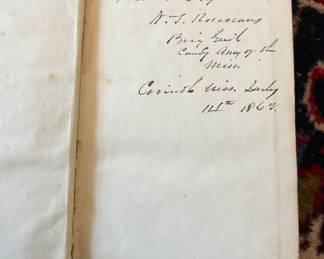 W. S. Rosecrans
Brig Genl
Comdg Army of the
Miss.
Corinth Miss. July
14th 1862.